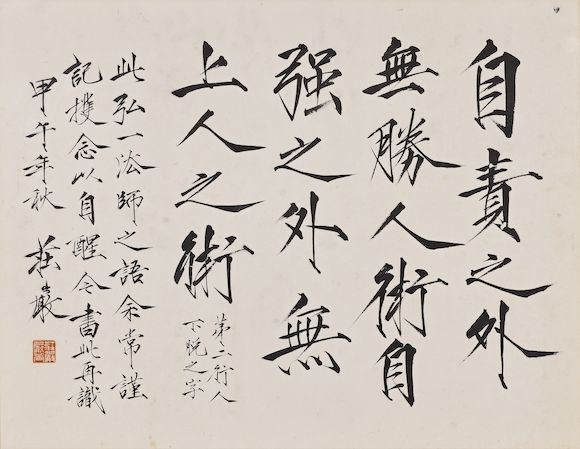 自責之外
無勝人術自
强之外無
上人之術
第二行人
下脫之字
此弘一法師之語余常謹
記念以自醒今書此再識
甲午年秋 莊嚴